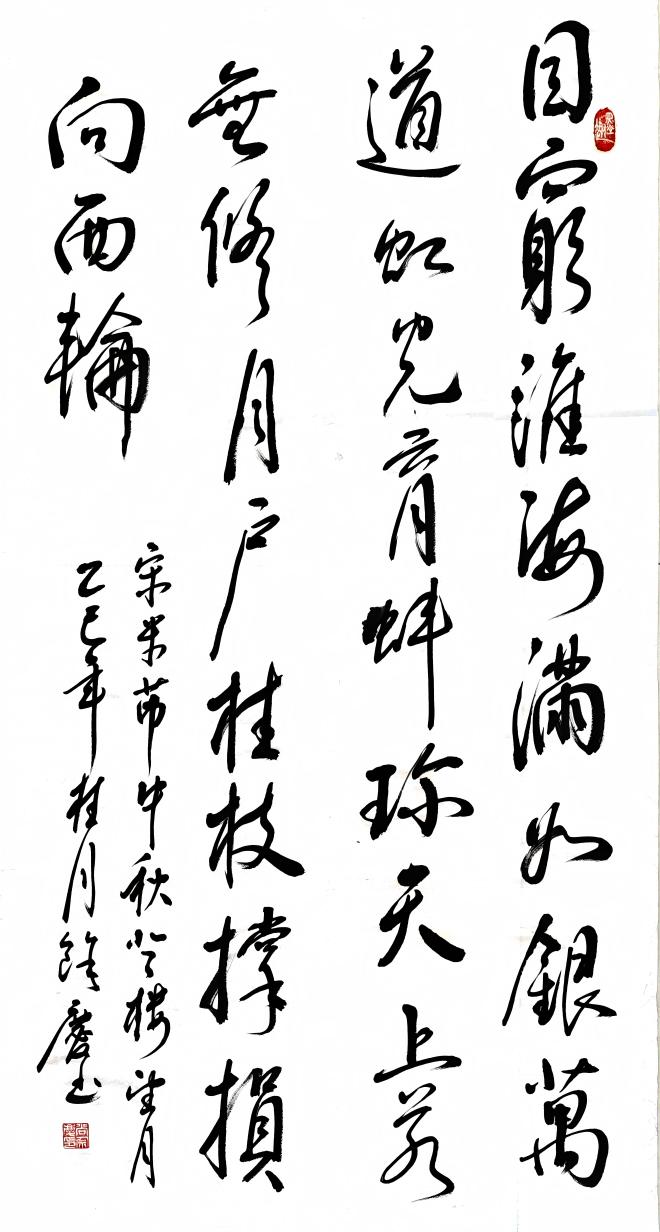 目窮淮海滿如銀萬
道虹光育蚌珍天上若
無修月户桂枝撐損
向西輪
宋米芾中秋登楼望月
乙巳年桂月餘慶书